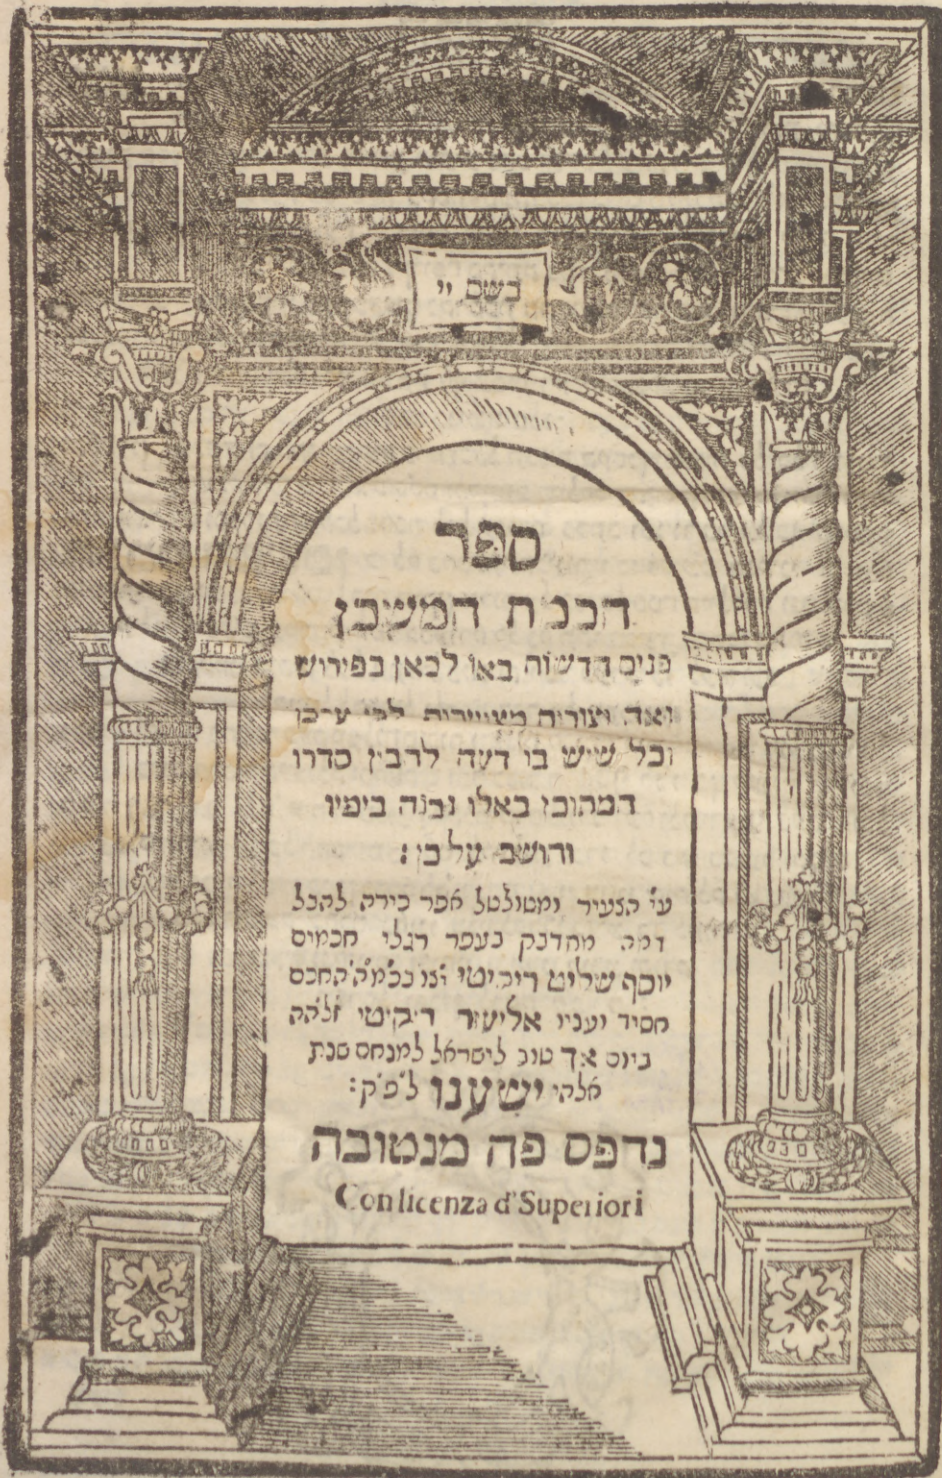 בשם יי
ספר
חכמת המשכן
פנים חדשות באו לכאן בפירוש
וצורות מצויירות לפי ערכו
וכל שיש בו דעה להבין סדרו
המתוכן באלו נבנה ביפיו
והושב על כן :
ע״י הצעיר ומטולטל אפר כירה לקבל
דמה מתדבק בעפר רגלי חכמים
יוסף שליט ריקיטי יצו בכ״מ״ה החכם
חסיד ועניו אליעזר ריקיטי זלהה
ביום אך טוב לישראל למנחם שנת
אלהי ישענו לפ״ק :
נדפס פה מנטובה
Con licenza d'Superiori